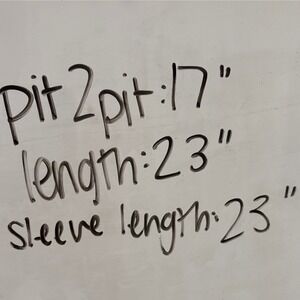 pit2pit:17"
length:23"
sleeve length:23"